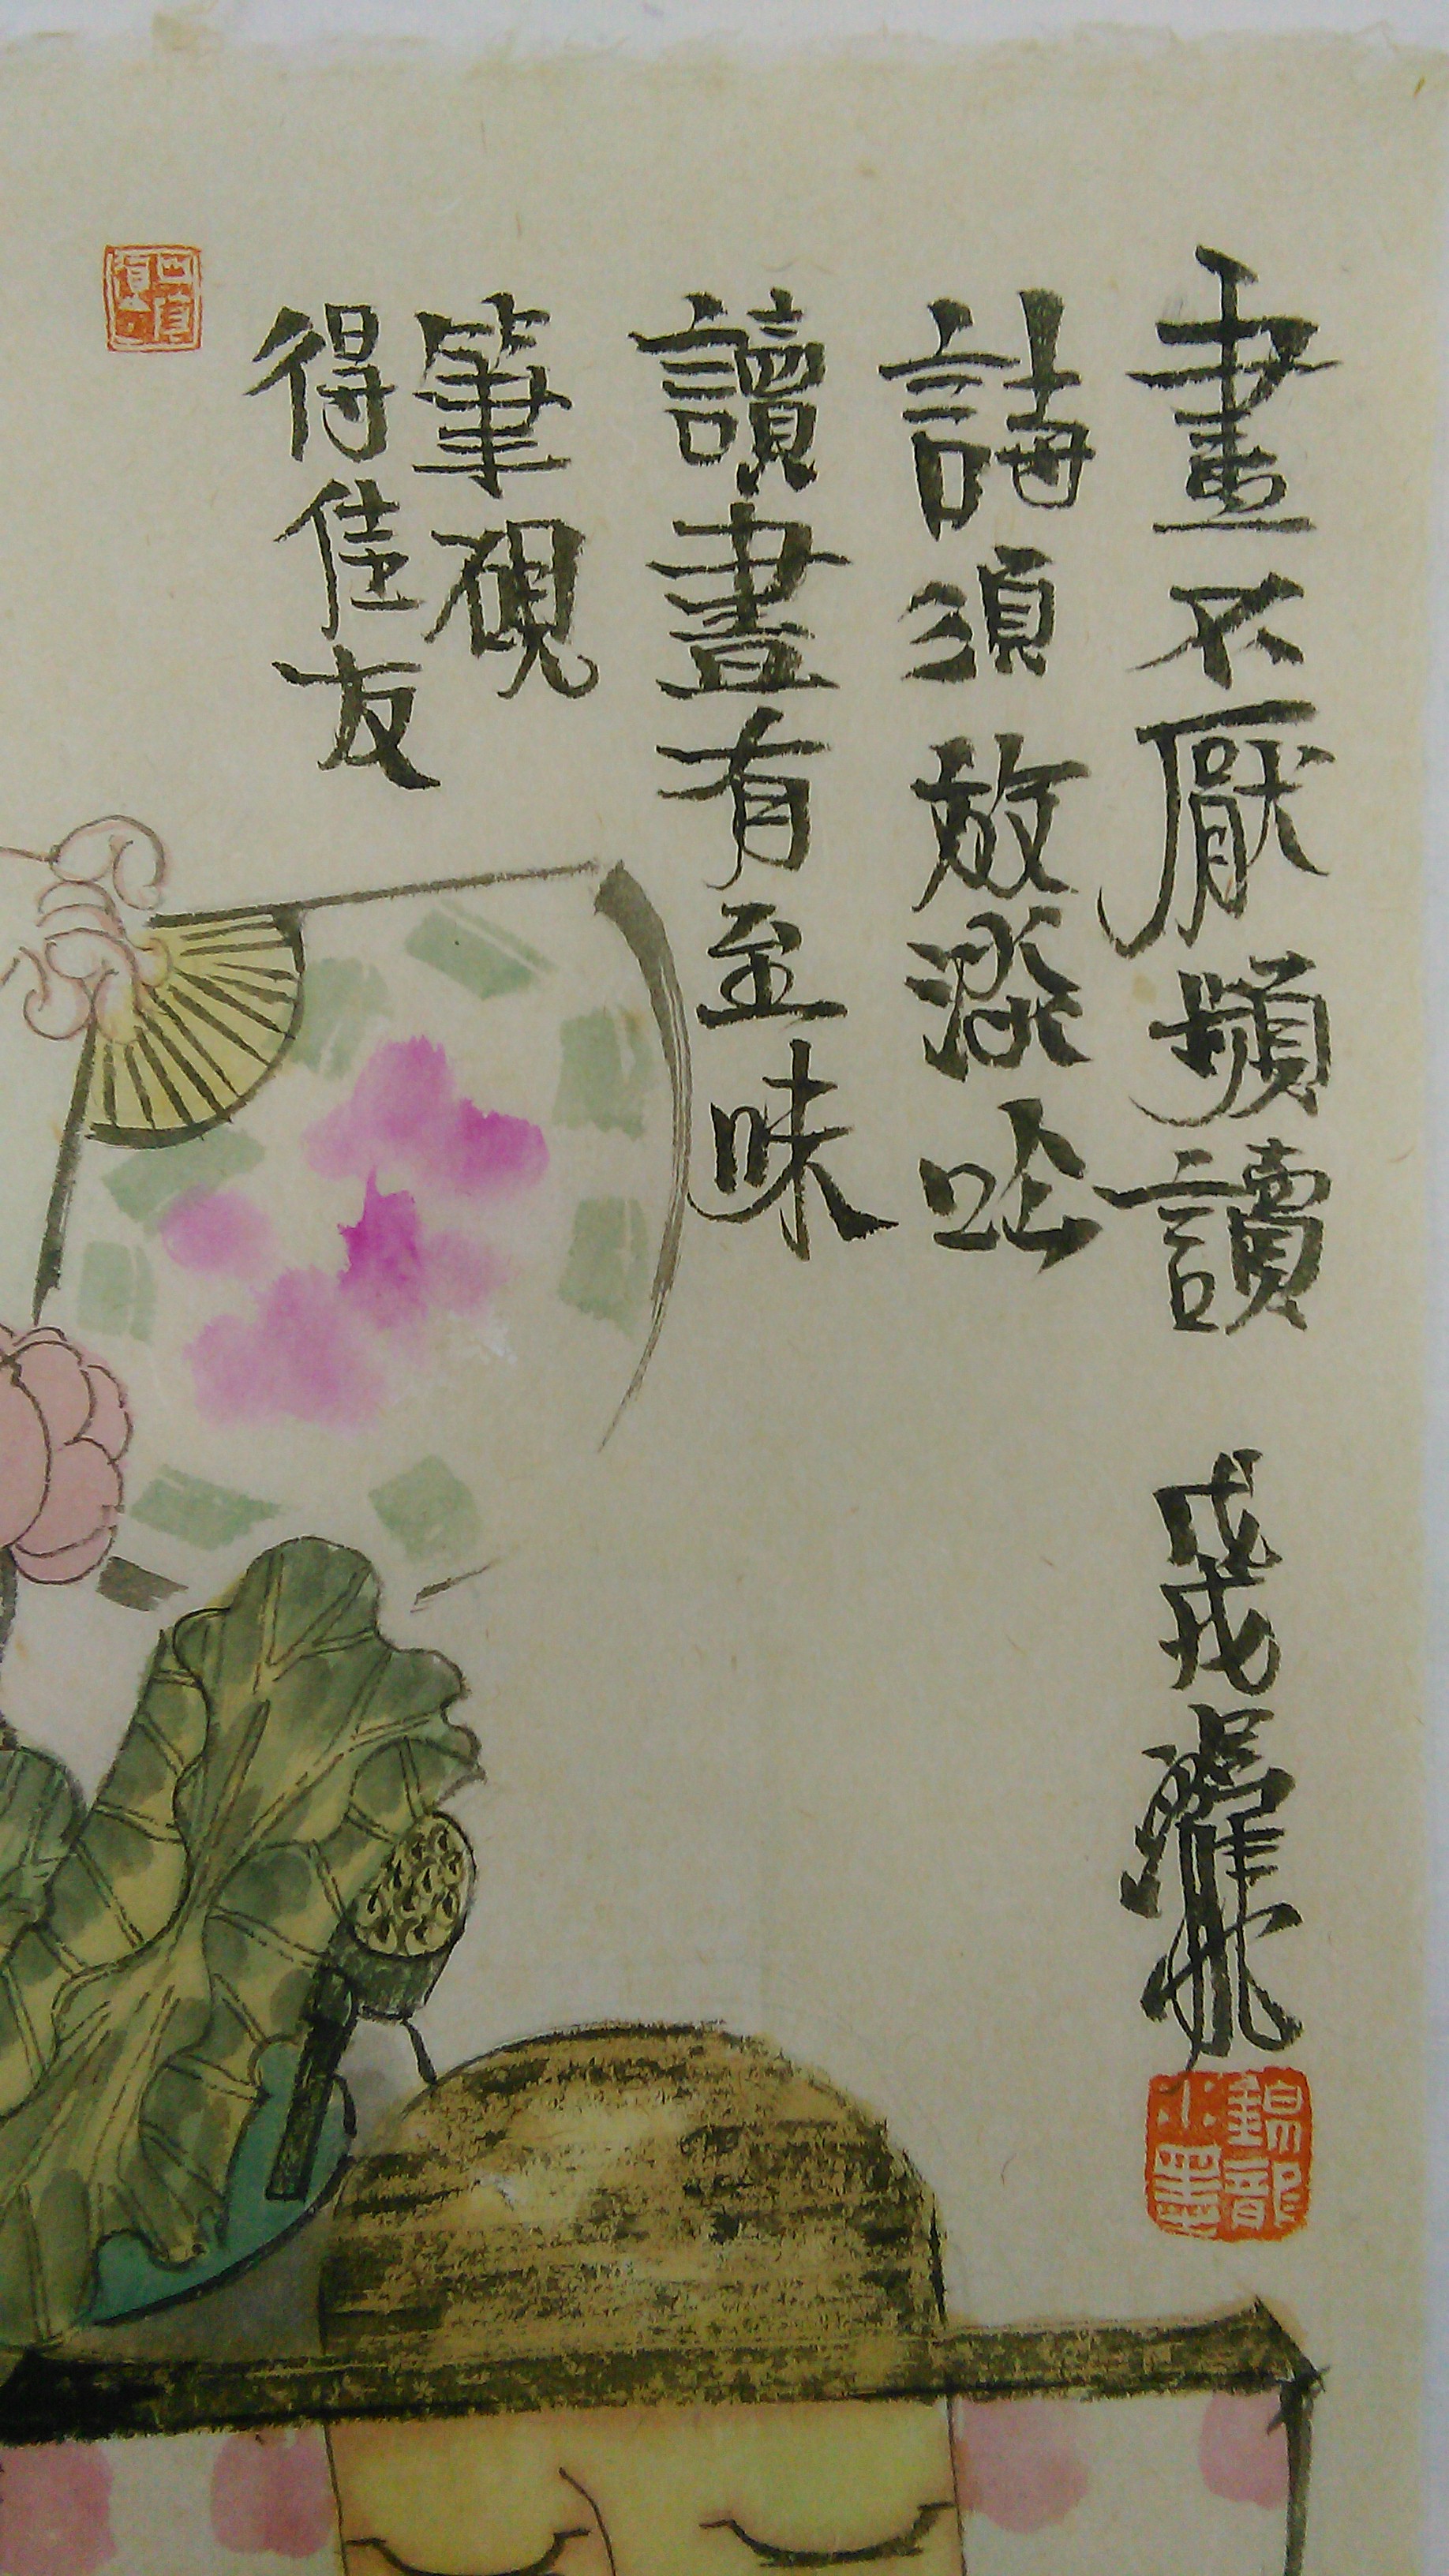 書不厭頻讀
詩須放淡吟
讀書有至味
筆硯
得佳友
戊戌
錫龍小墨